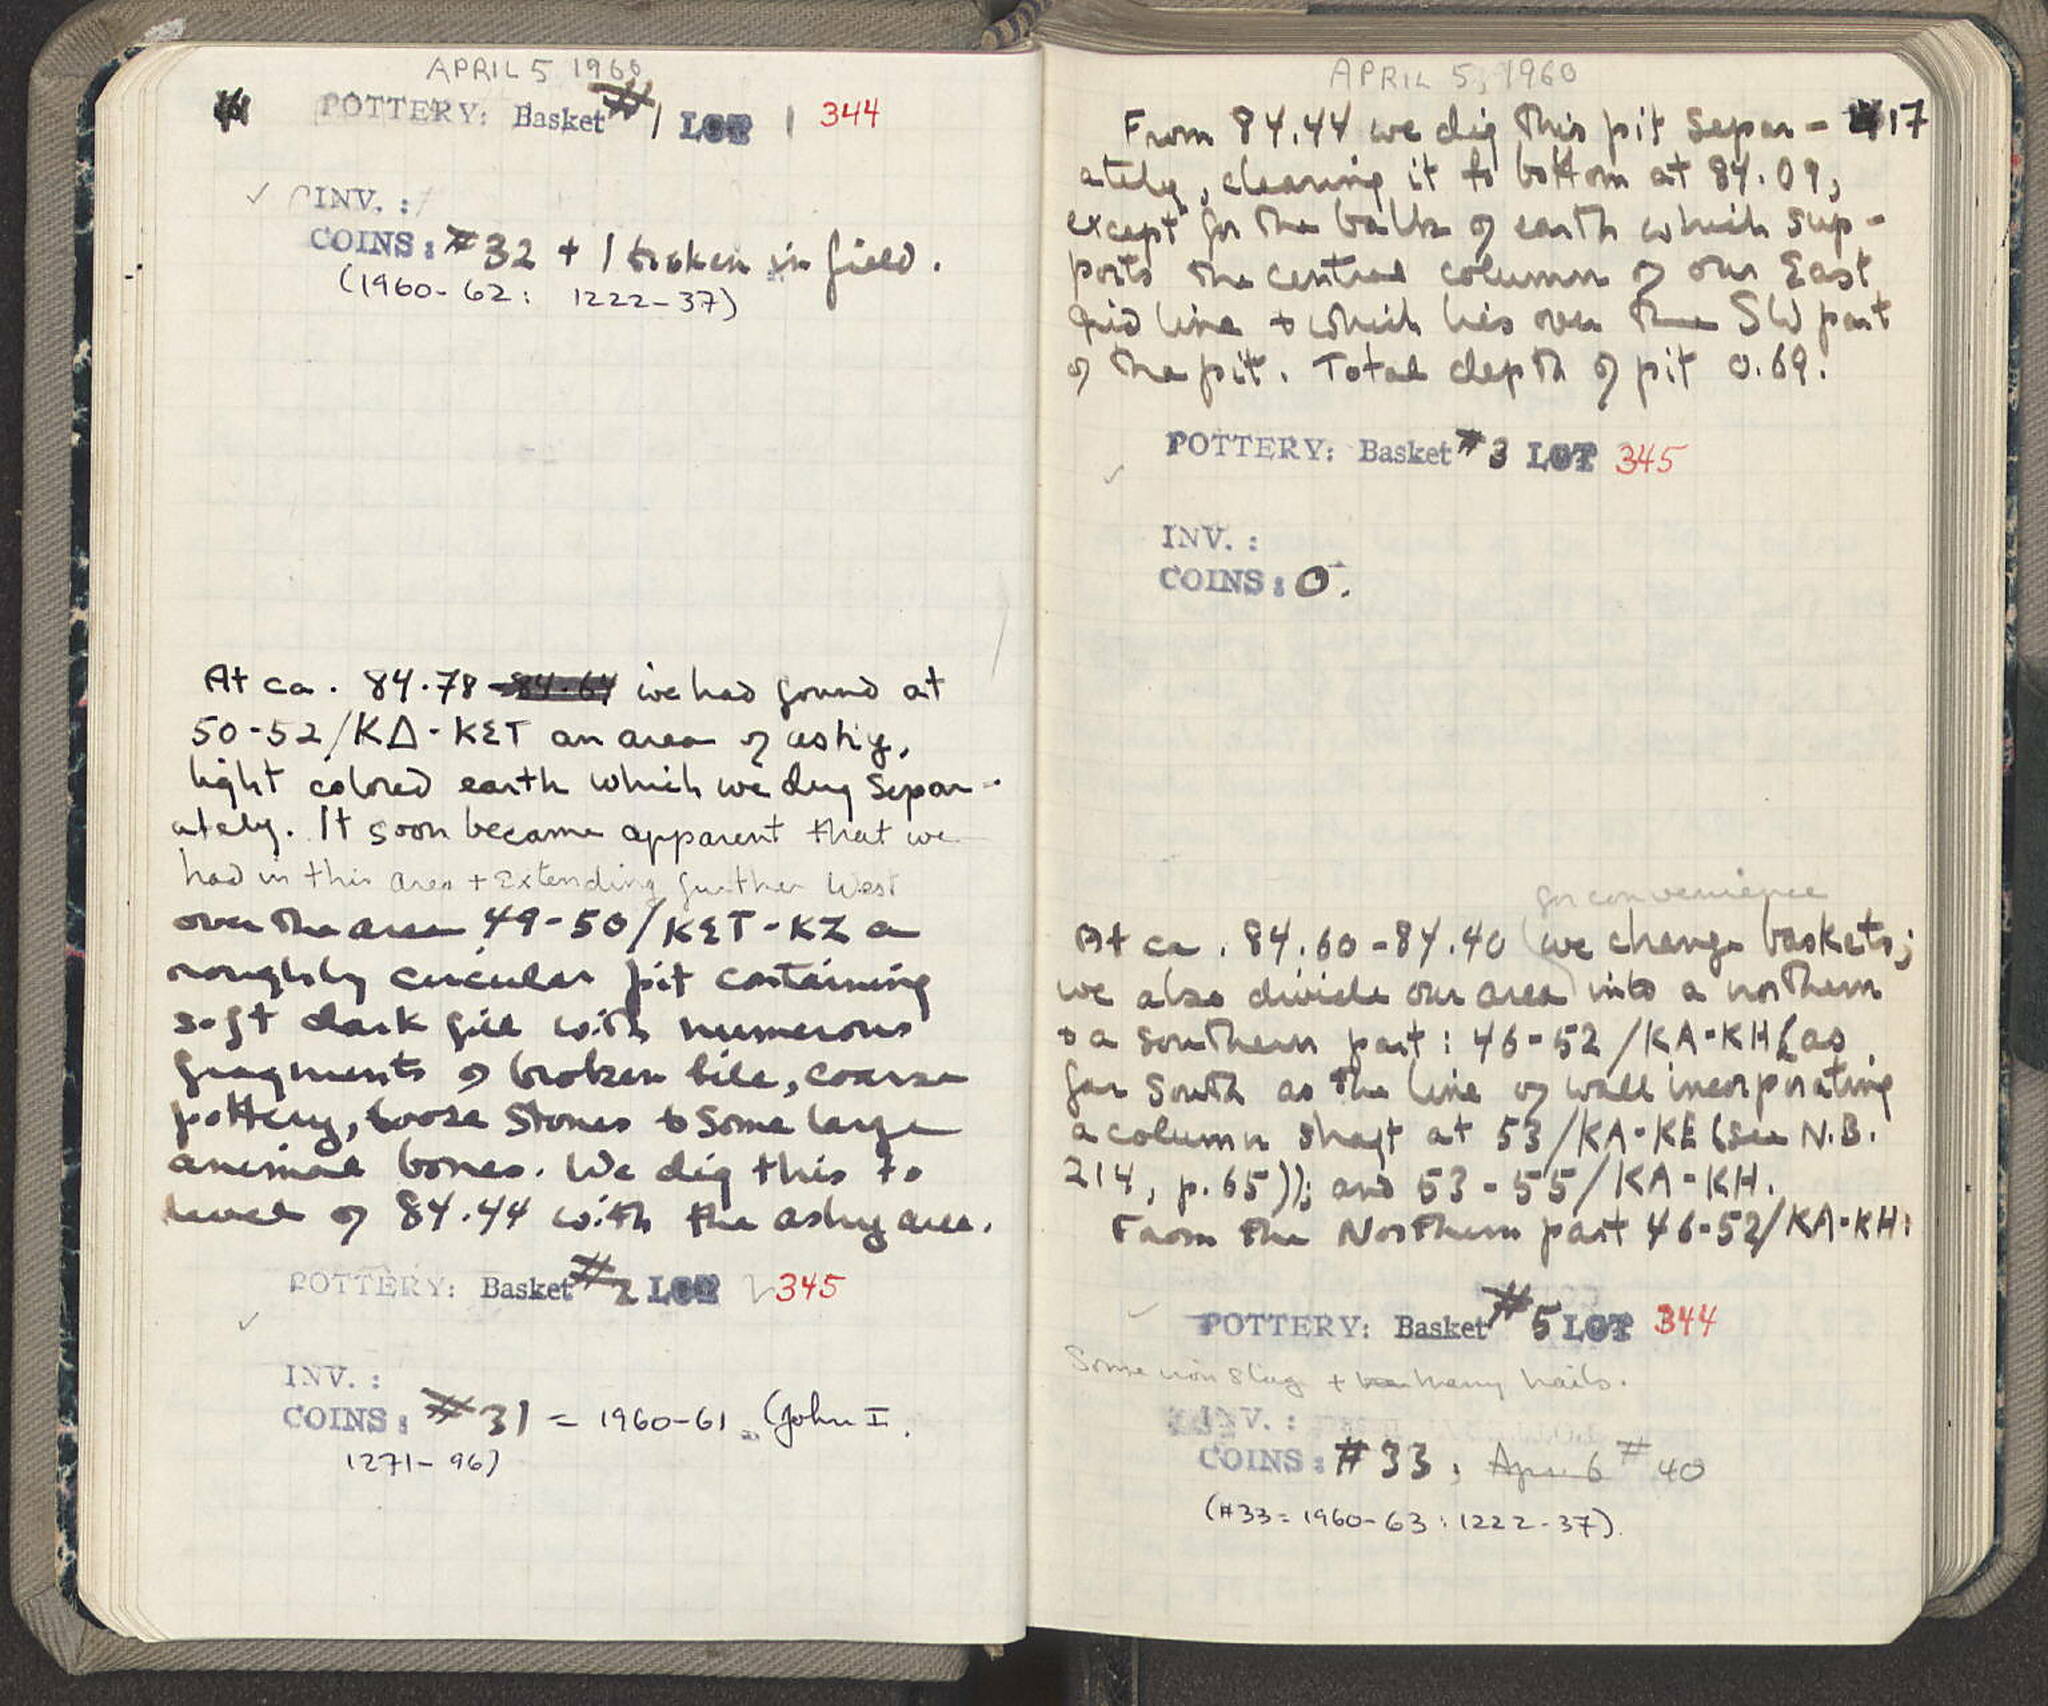 APRIL 5 1960
16
POTTERY: Basket #1 LOT 1 344
✓ INV. :
COINS: #32 + 1 broken in field.
(1960-62: 1222-37)
At ca. 84.78 -84.64 we had found at
50-52/ΚΔ-ΚΣΤ an area of ashy,
light colored earth which we dug separ-
ately. It soon became apparent that we
had in this area + extending further West
over the area 49-50/ΚΣΤ-ΚΖ a
roughly circular pit containing
soft dark fill with numerous
fragments of broken tile, coarse
pottery, loose stones & some large
animal bones. We dig this to
level of 84.44 with the ashy area.
POTTERY: Basket #2 LOT 345
✓
INV. :
COINS: #31 = 1960-61 (John I.
1271-96)
APRIL 5, 1960
17
From 84.44 we dig this pit separ-
ately, clearing it to bottom at 84.09,
except for the balk of earth which sup-
ports the central column of our East
grid line & which lies over the SW part
of the pit. Total depth of pit 0.69.
POTTERY: Basket #3 LOT 345
✓
INV. :
COINS: 0.
for convenience
At ca. 84.60-84.40 we change baskets;
we also divide our area into a northern
& a southern part: 46-52/ΚΑ-ΚΗ (as
far South as the line of wall incorporating
a column shaft at 53/ΚΑ-ΚΕ (see N.B.
214, p.65)); and 53-55/ΚΑ-ΚΗ.
From the Northern part 46-52/ΚΑ-ΚΗ:
POTTERY: Basket #5 LOT 344
Some iron slag + many nails.
INV. :
COINS: #33, Apr. 6 #40
(#33 = 1960-63: 1222-37).